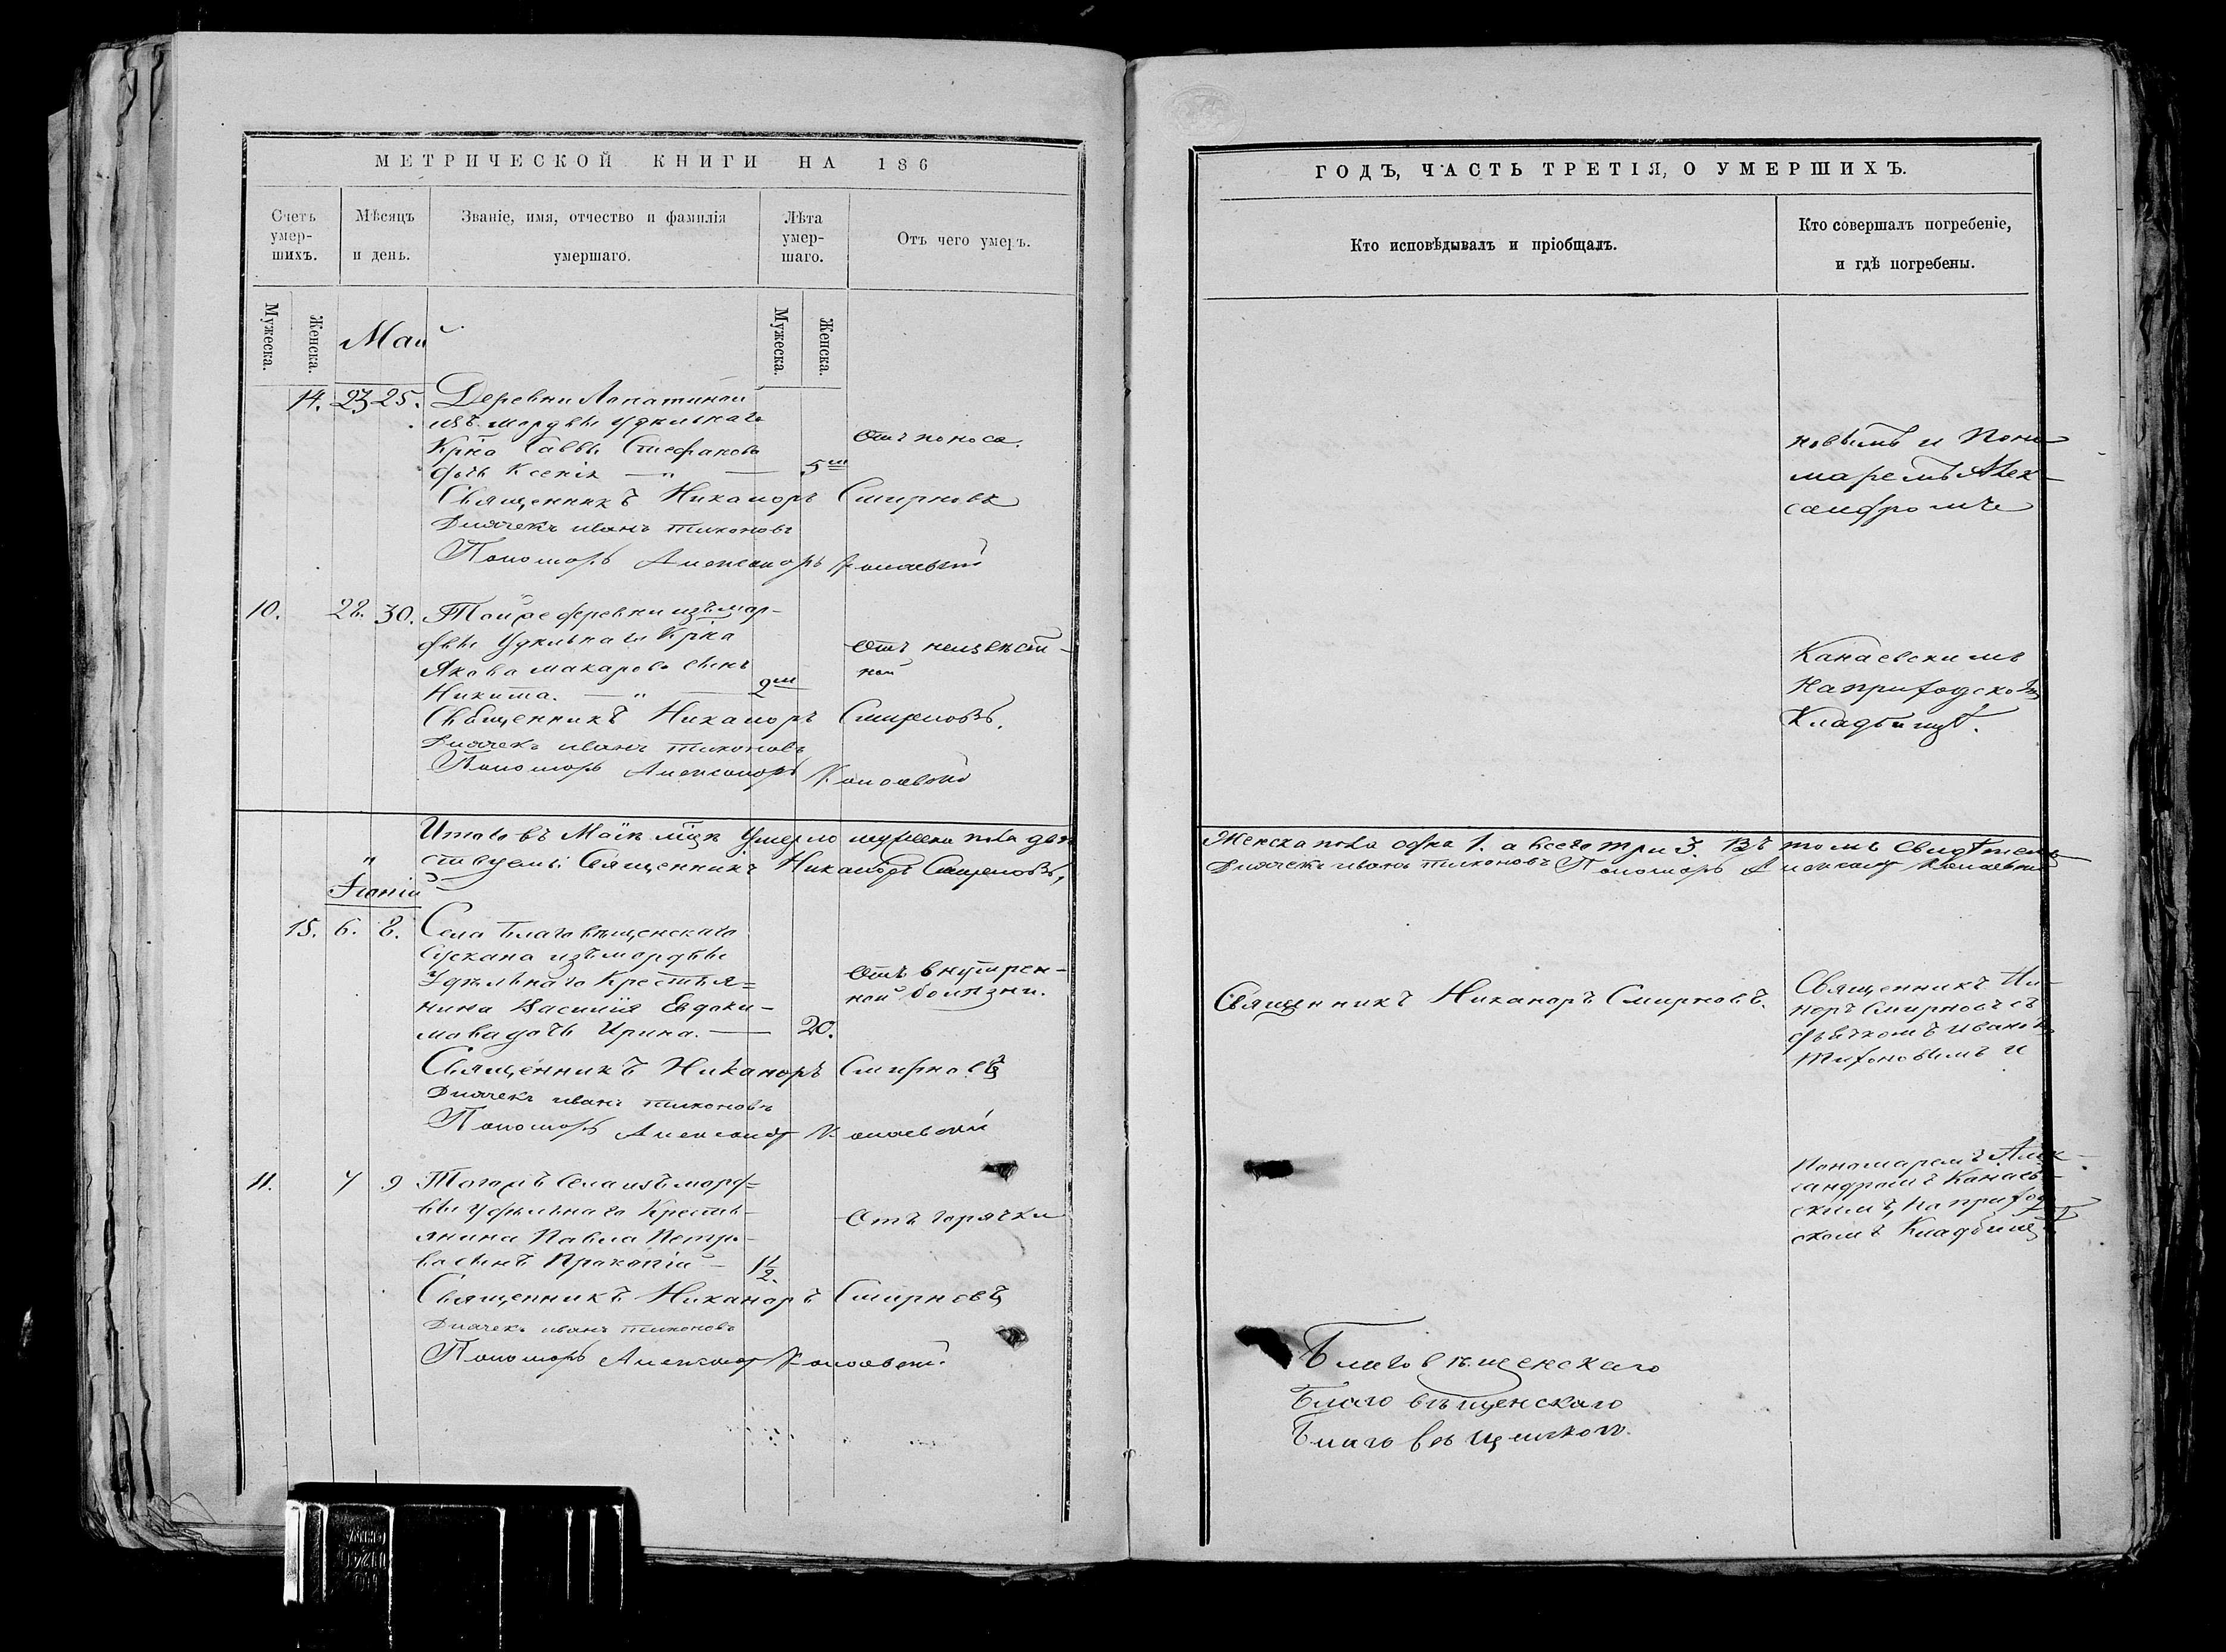 МЕТРИЧЕСКОЙ КНИГИ НА 186
Счетъ умер-шихъ.
Мѣсяцъ и день.
Званіе, имя, отчество и фамилія умершаго.
Лѣта умер-шаго.
Отъ чего умеръ.
Мужеска.
Женска.
Май
Мужеска.
Женска.
14. 23 25. Деревни Лопатиной
изъ мордвы удѣльнаго
Крѣна Саввы Стефанова
дочь Ксенія — " — 5
Отъ поноса.
Священникъ Никаноръ Смирновъ
Дьячекъ Иванъ Тихоновъ
Пономарь Александръ Канаевскій
10. 28. 30. Той же деревни изъ мор-
двы Удѣльнаго Крѣна
Якова Макарова сынъ
Никита. — " — 2
Отъ неизвѣст-
ной
Священникъ Никаноръ Смирновъ.
Дьячекъ Иванъ Тихоновъ
Пономарь Александръ Канаевскій
Итого въ Маѣ мцѣ Умерло мужеска пола два
"
ствуемъ: Священникъ Никаноръ Смирновъ,
Іюній
15. 6. 8. Села Благовѣщенскаго
Сускана изъ мордвы
Удѣльнаго Крестья=
нина Василія Евдоки-
мова дочь Ирина. — 20.
Отъ внутрен-
ной болѣзни.
Священникъ Никаноръ Смирновъ
Дьячекъ Иванъ Тихоновъ
Пономарь Александръ Канаевскій
11. 7 9 Тогожъ Села изъ морд=
вы удѣльнаго Кресть-
янина Павла Петро-
ва сынъ Прокопій — 1/2.
Отъ горячки
Священникъ Никаноръ Смирновъ
Дьячекъ Иванъ Тихоновъ
Пономарь Александръ Канаевскій.
ГОДЪ, ЧАСТЬ ТРЕТІЯ, О УМЕРШИХЪ.
Кто исповѣдывалъ и пріобщалъ.
Кто совершалъ погребеніе, и гдѣ погребены.
новымъ и Поно-
маремъ Алек-
сандромъ
Канаевскимъ
На приходскомъ
Кладбищѣ.
Женска пола одна 1. а всего три 3. Въ томъ свидѣтель-
Дьячекъ Иванъ Тихоновъ Пономарь Александръ Канаевскій
Священникъ Никаноръ Смирновъ.
Священникъ Ни-
норъ Смирновъ съ
дьячкомъ Иваномъ
Тихоновымъ и
Пономаремъ Алек-
сандромъ Канаев-
скимъ, На приход-
скомъ Кладбищѣ.
Благовѣщенскаго
Благовѣщенскаго
Благовѣщенскаго.